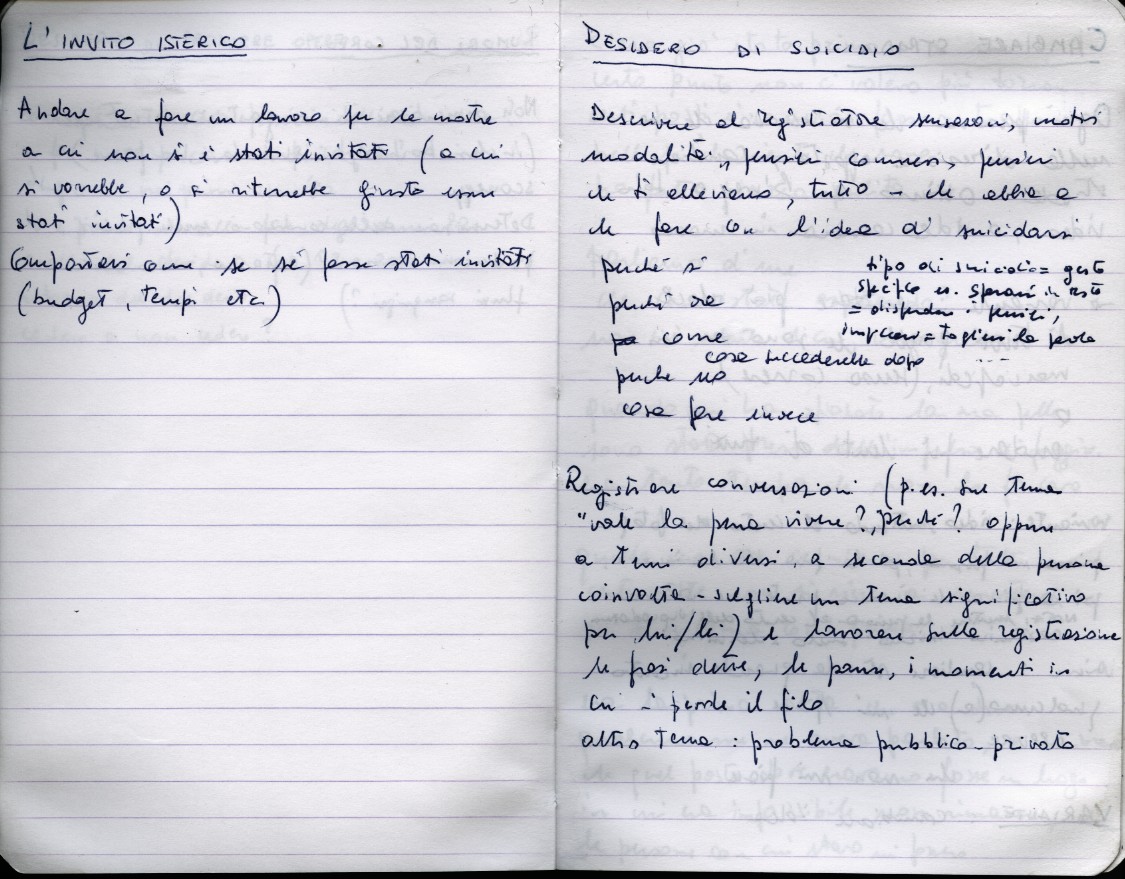 L'INVITO ISTERICO
Andare a fare un lavoro per le mostre
a cui non si è stati invitati (a cui
si vorrebbe, o si riterrebbe giusto essere
stati invitati)
Comportarsi come se si fosse stati invitati
(budget, tempi etc)
DESIDERO DI SUICIDIO
Descrivere al registratore sensazioni, motivi
modalità, pensieri connessi, pensieri
che ti alleviano, tutto ciò che abbia a
che fare con l'idea di suicidarsi
perché sì
perché ora
come
cosa succederebbe dopo
perché no
cosa fare invece
tipo di suicidio = gesto
specifico es. spararsi in testa
= disperdere i pensieri,
impiccarsi = togliersi la parola
...
Registrare conversazioni (p.es. sul tema
"vale la pena vivere?, perché? oppure
a temi diversi, a seconda della persona
coinvolta - scegliere un tema significativo
per lui/lei) e lavorare sulla registrazione
le frasi dette, le pause, i momenti in
cui si perde il filo
altro tema: problema pubblico-privato